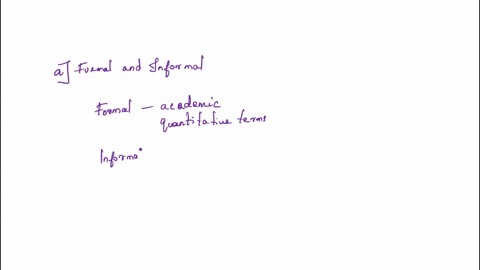 a] Formal and Informal
Formal — academic
quantitative terms
Informa